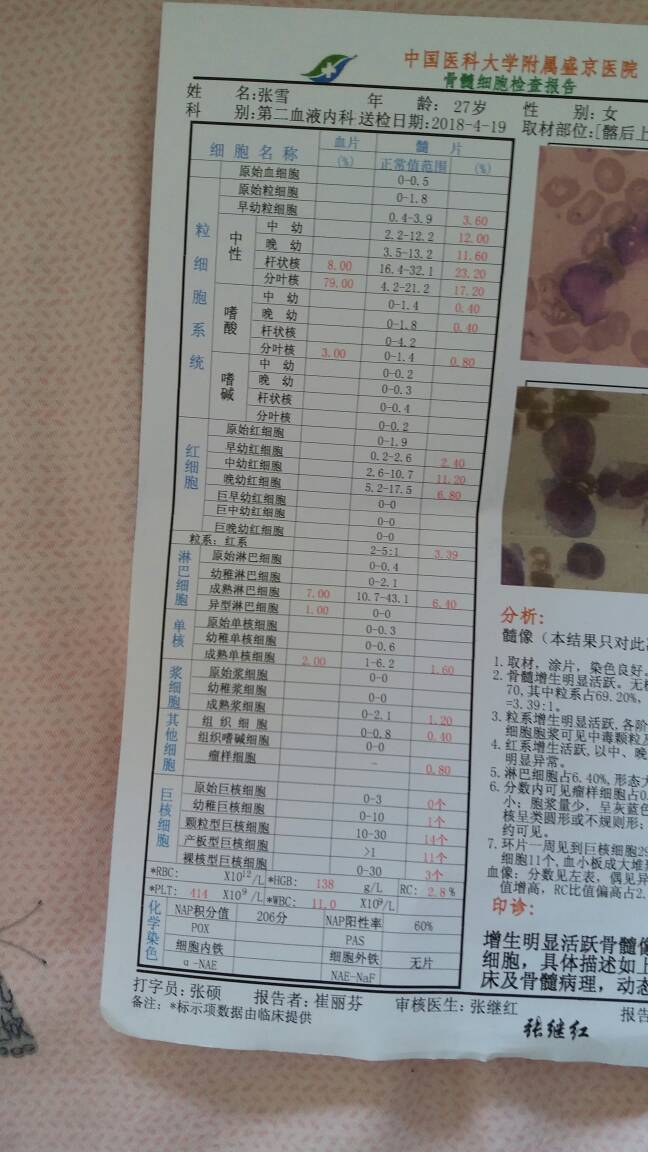 中国医科大学附属盛京医院
骨髓细胞检查报告
姓 名:张雪 年 龄: 27岁 性 别:女
科 别:第二血液内科 送检日期:2018-4-19 取材部位:[髂后上
细 胞 名 称 血片 (%) 髓 片 正常值范围 (%)
粒细胞系统
原始血细胞 0-0.5
原始粒细胞 0-1.8
早幼粒细胞 0.4-3.9 3.60
中性 中 幼 2.2-12.2 12.00
晚 幼 3.5-13.2 11.60
杆状核 8.00 16.4-32.1 23.20
分叶核 79.00 4.2-21.2 17.20
嗜酸 中 幼 0-1.4 0.40
晚 幼 0-1.8 0.40
杆状核 0-4.2
分叶核 3.00 0-1.4 0.80
嗜碱 中 幼 0-0.2
晚 幼 0-0.3
杆状核 0-0.4
分叶核 0-0.2
红细胞
原始红细胞 0-1.9
早幼红细胞 0.2-2.6 2.40
中幼红细胞 2.6-10.7 11.20
晚幼红细胞 5.2-17.5 6.80
巨早幼红细胞 0-0
巨中幼红细胞 0-0
巨晚幼红细胞 0-0
粒系: 红系 2-5:1 3.39
淋巴细胞
原始淋巴细胞 0-0.4
幼稚淋巴细胞 0-2.1
成熟淋巴细胞 7.00 10.7-43.1 6.40
异型淋巴细胞 1.00 0-0
单核
原始单核细胞 0-0.3
幼稚单核细胞 0-0.6
成熟单核细胞 2.00 1-6.2 1.60
浆细胞
原始浆细胞 0-0
幼稚浆细胞 0-0
成熟浆细胞 0-2.1 1.20
其他细胞
组 织 细 胞 0-0.8 0.40
组织嗜碱细胞 0-0
瘤样细胞 - 0.80
巨核细胞
原始巨核细胞 0-3 0个
幼稚巨核细胞 0-10 1个
颗粒型巨核细胞 10-30 14个
产板型巨核细胞 >1 11个
裸核型巨核细胞 0-30 3个
*RBC: X10¹²/L *HGB: 138 g/L RC: 2.8 %
*PLT: 414 X10⁹/L *WBC: 11.0 X10⁹/L
化学染色
NAP积分值 206分 NAP阳性率 60%
POX PAS
细胞内铁 细胞外铁 无片
α-NAE NAE-NaF
分析:
髓像(本结果只对此
1.取材, 涂片, 染色良好。
2.骨髓增生明显活跃。无
70,其中粒系占69.20%,
=3.39:1。
3.粒系增生明显活跃,各阶
细胞胞浆可见中毒颗粒及
4.红系增生活跃,以中、晚
明显异常。
5.淋巴细胞占6.40%,形态大
6.分数内可见瘤样细胞占0.
小; 胞浆量少, 呈灰蓝色
核呈类圆形或不规则形;
约可见。
7.环片一周见到巨核细胞29
细胞11个,血小板成大堆
血像: 分数见左表, 偶见异
值增高, RC比值偏高占2.
印诊:
增生明显活跃骨髓像
细胞, 具体描述如上
床及骨髓病理, 动态
打字员: 张硕 报告者: 崔丽芬 审核医生: 张继红 报告
备注: *标示项数据由临床提供
张继红